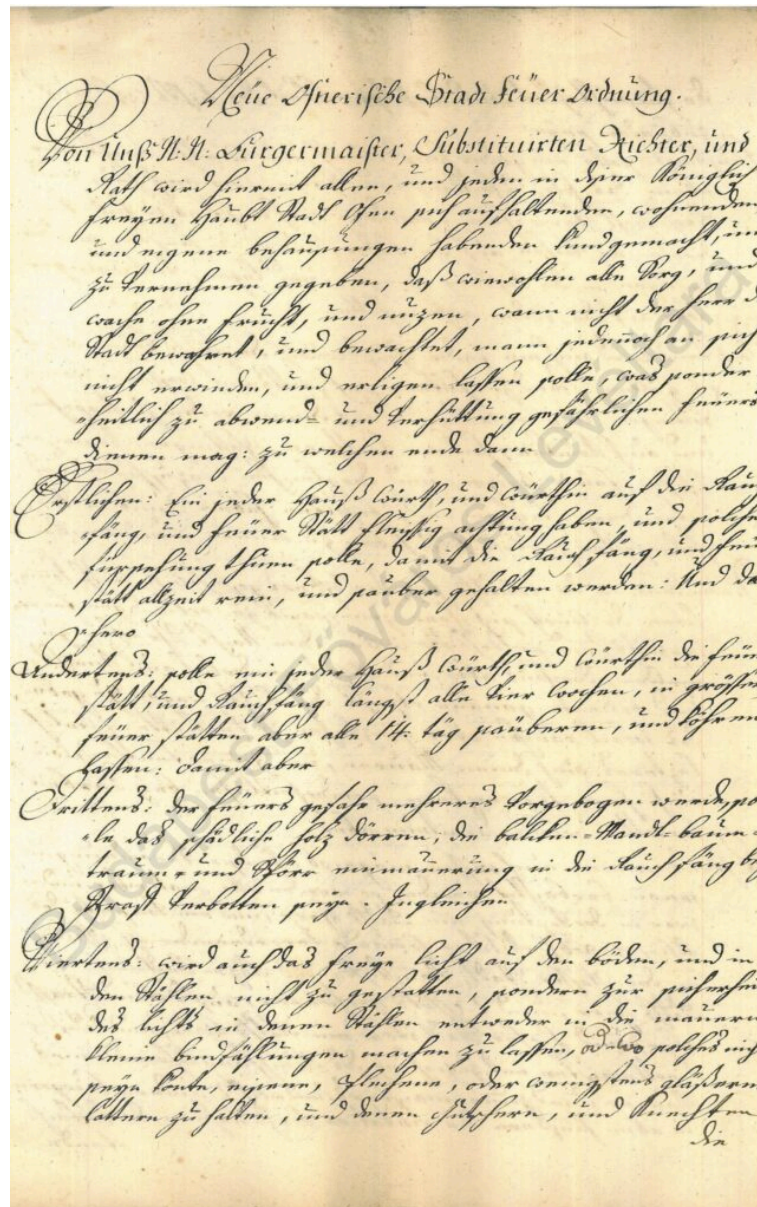 Neüe Ofnerische Stadt Feüer Ordnung.
Von Unß N: N: Burgermaister, Substituirten Richter, und
Rath wird hiermit allen, und jeden in dieser Königlich
freyen Haubt Stadt Ofen sich aufhaltenden, wohnenden
und eigene behausungen habenden kund gemacht, und
zu Vernehmen gegeben, daß wiewohlen alle Sorg, und
wache ohne frucht, und nuzen, wann nicht der Herr d
Stadt bewahret, und bewachtet, mann jedennoch an sich
nicht erwinden, und erligen lassen solle, was sonder
=heitlich zu abwend= und Verhüttung gefährlichen feüers
dienen mag: zu welchen ende dann
Erstlichen: Ein jeder Hauß Würth, und Würthin auf die Rau
=fäng, und feüer Stätt fleyssig achtung haben, und solche
fürsehung thuen solle, damit die Rauchfäng, und feü
stätt allzeit rein, und sauber gehalten werden: Und da
=hero
Andertens: solle ein jeder Hauß Würth, und Würthin die feüer
stätt, und Rauchfäng längst alle Vier Wochen, in grösser
feüer stätten aber alle 14: täg saüberen, und köhren
Lassen: damit aber
Drittens: der feüers gefahr mehreres Vorgebogen werde, so
=le das schädliche holz dörren, die balken= Wandt= baum=
traum= und Spörr einmauerung in die Rauchfäng bey
Straff Verbotten seyn. Ingleichen
Viertens: wird auch das freye licht auf den böden, und in
den Ställen nicht zu gestatten, sondern zur sicherheit
des lichts in denen Ställen entweder in die mauern
kleine machen zu lassen, oder wo solches nich
seyn konte, eisene, blechene, oder wenigstens gläßerne
latern zu halten, und denen Kutschern, und Knechten
die